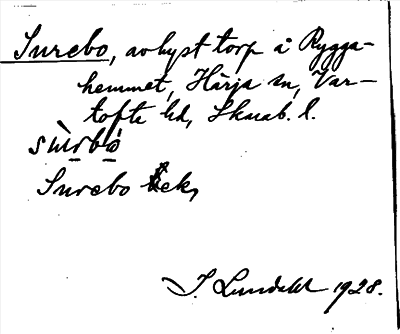 Surebo, avhyst torp å Rygga-
hemmet, Härja sn, Var-
tofte hd, Skarab. l.
sùrbo
Surebo Ek,
J. Lundahl 1928.